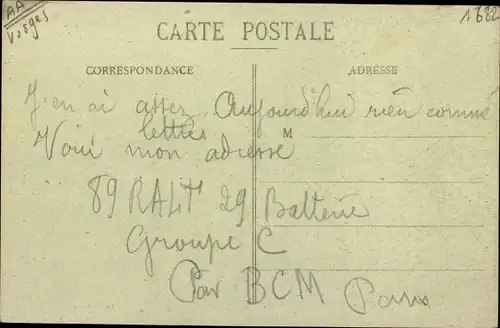 AA
Vosges
1882
CARTE POSTALE
CORRESPONDANCE
ADRESSE
J'en ai assez. Aujourd'hui rien comme
lettres
M
Voici mon adresse
89 RALT 29 Batterie
Groupe C
Par BCM Paris